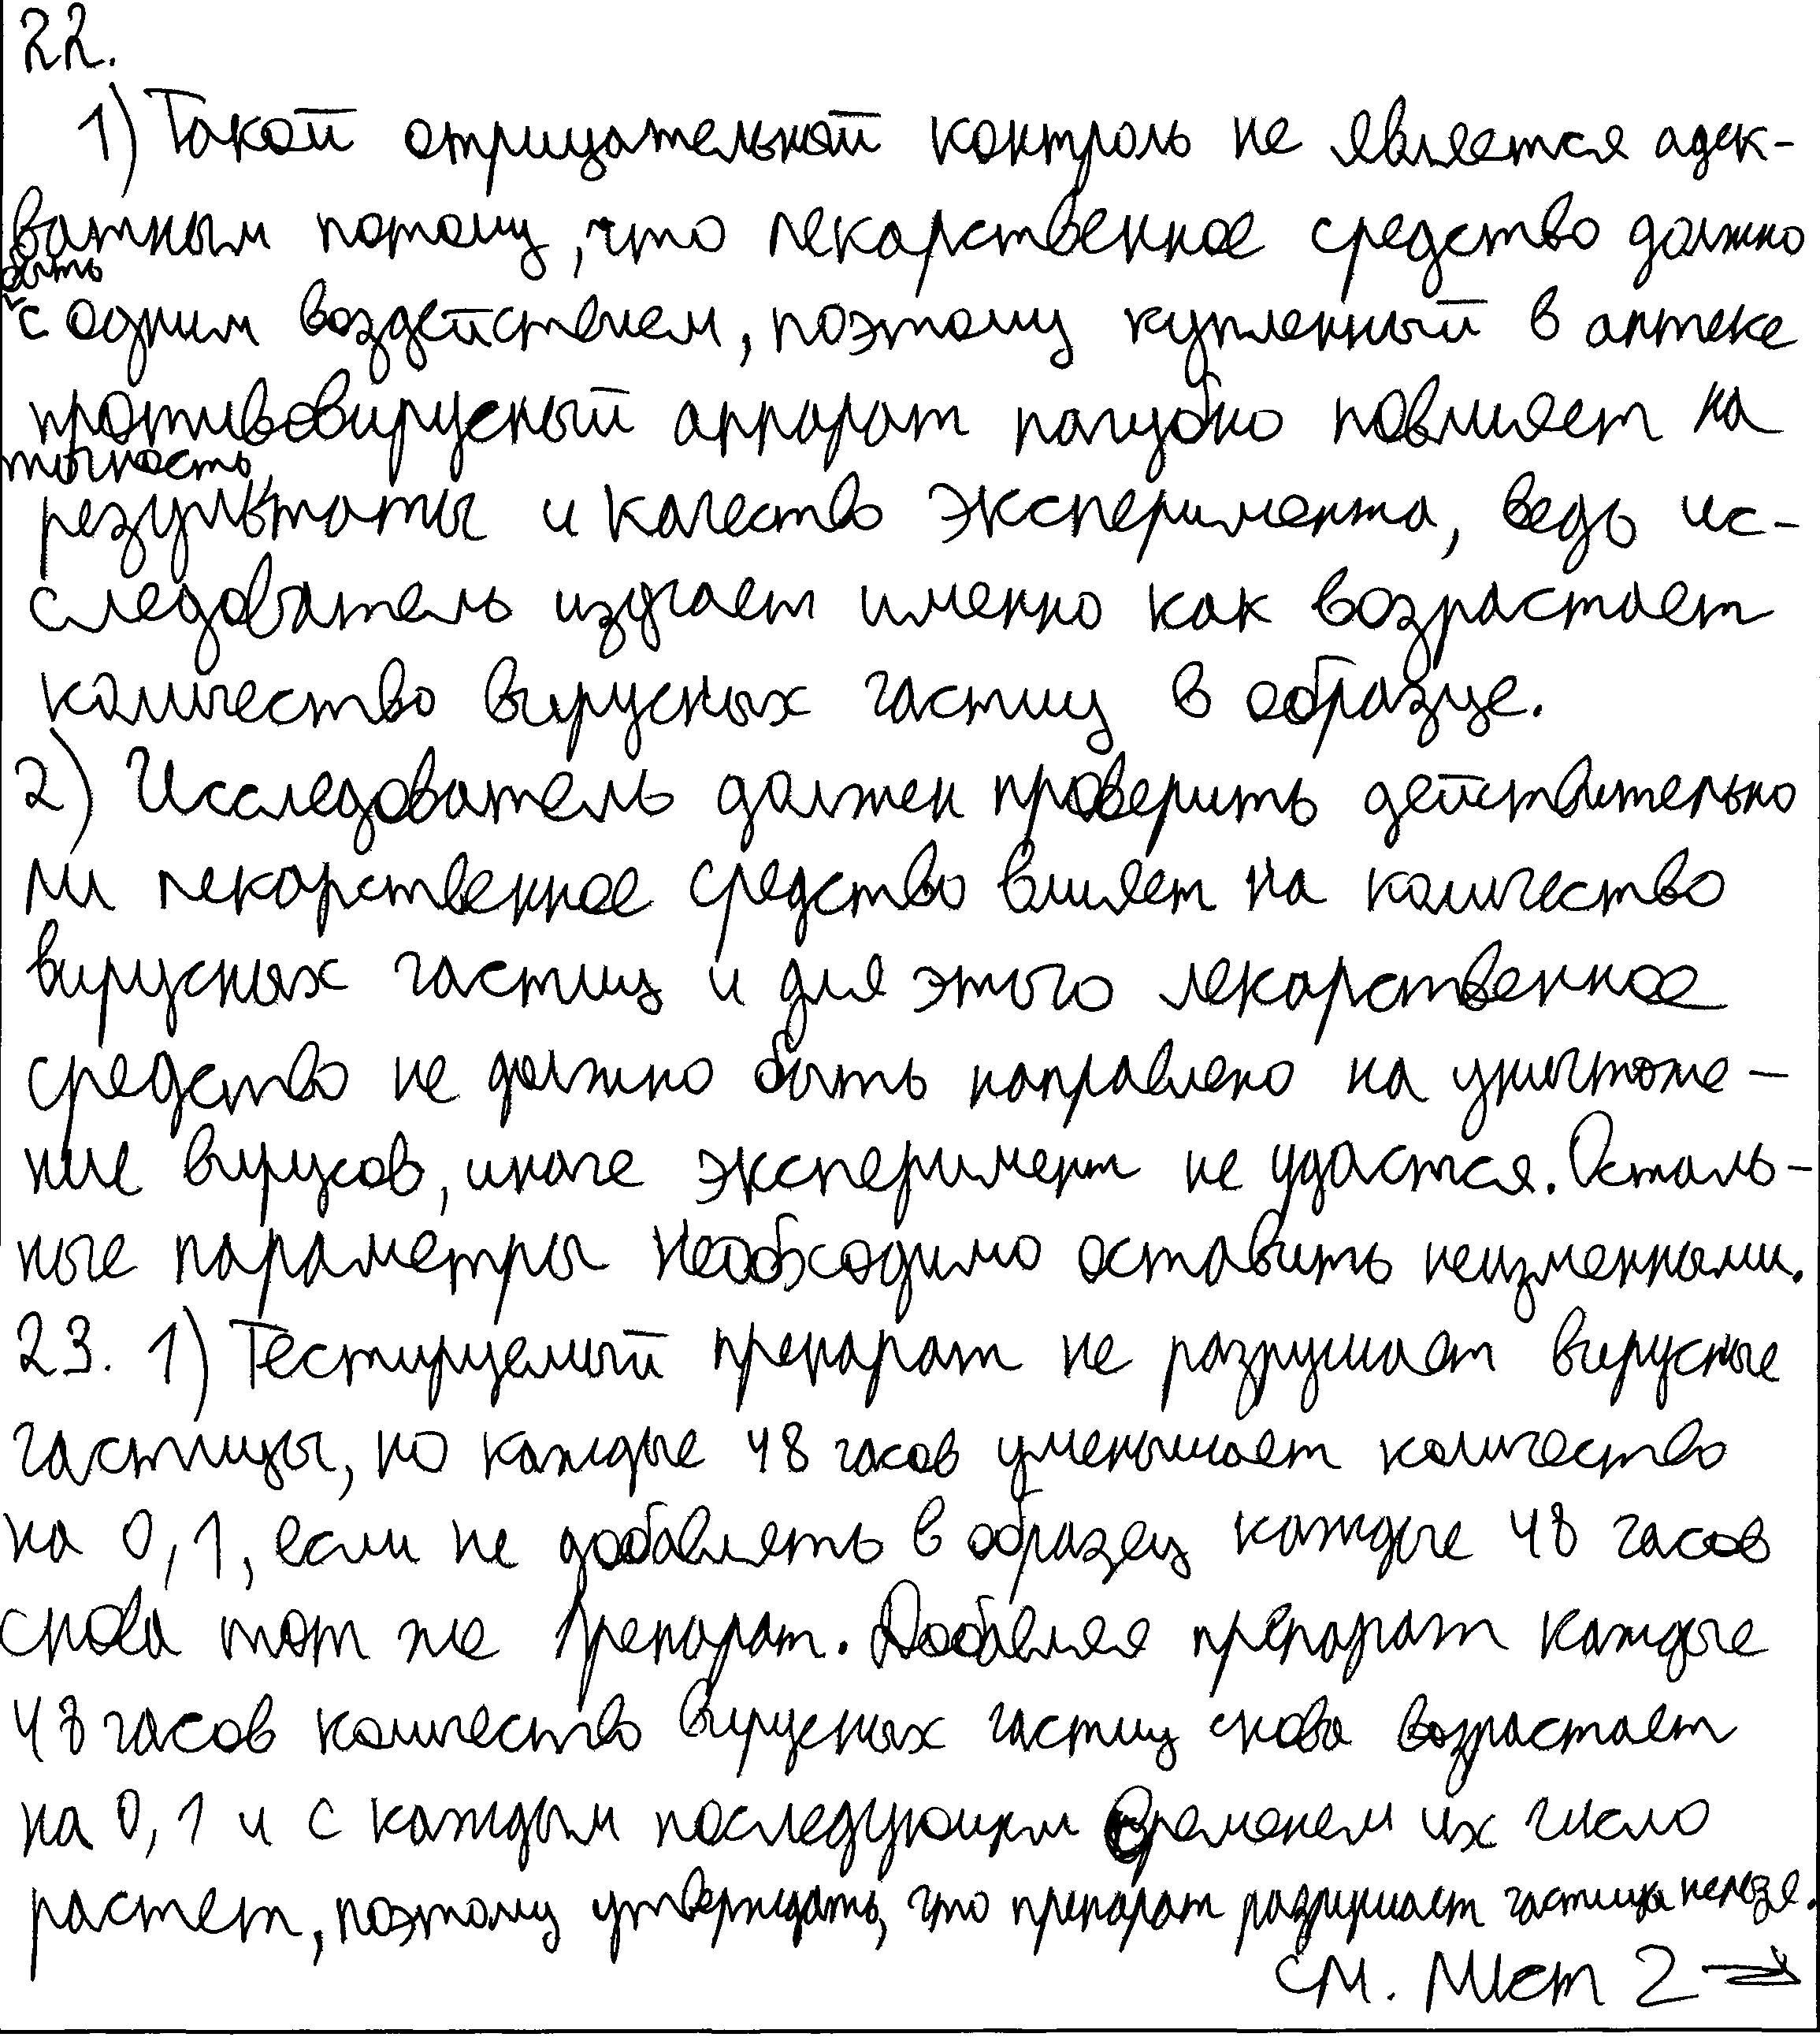 22.
1) Такой отрицательной контроль не является адек-
ватным потому, что лекарственное средство должно
быть
с одним воздействием, поэтому купленный в аптеке
противовирусный аппарат пагубно повлияет на
точность
результаты и качество эксперимента, ведь ис-
следователь изучает именно как возрастает
количество вирусных частиц в образце.
2) Исследователь должен проверить действительно
ли лекарственное средство влияет на количество
вирусных частиц и для этого лекарственное
средство не должно быть направлено на уничтоже-
ние вирусов, иначе эксперимент не удастся. Осталь-
ные параметры необходимо оставить неизменными.
23. 1) Тестируемый препарат не разрушает вирусные
частицы, но каждые 48 часов уменьшает количество
на 0,1, если не добавлять в образец каждые 48 часов
снова тот же препарат. Добавляя препарат каждые
48 часов количество вирусных частиц снова возрастает
на 0,1 и с каждым последующим временем их число
растет, поэтому утверждать, что препарат разрушает частицы нельзя.
см. лист 2 →